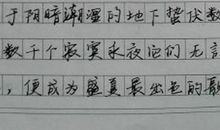 于阴暗潮湿的地下蛰伏数
数千个寂寞永夜它们无言
，便成为盛夏最出色的歌